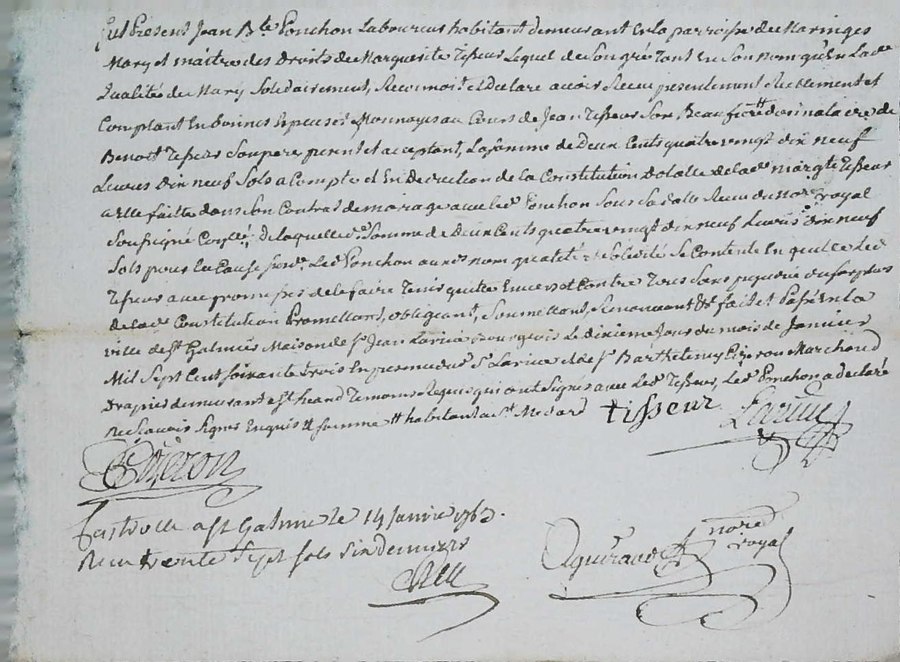 fut Present Jean Bte Ponchon Laboureur habitant demeurant en la parroisse de Maringes
Mary et maitre des Droits de Marguerite Tisseur Lequel de son gré Tant En Son nom qu'En lade
qualité de Mary Solidairement, Reconnoit et declare avoir Receu presentement Reellement et
Comptant En bonnes Especes et Monnoyes au Cours de Jean Tisseur Son Beau frere
Benoit Tisseur Son pere, present et acceptant, La somme de Deux Cents quatre vingt dix neuf
Livres dix neuf Sols a Compte et En Deduction de la Constitution Dotalle de lade margte Tisseur
a Elle faitte dans son Contrat de mariage avec led Ponchon Sous Sa datte Receu du nore royal
Soussigné de laquelle de Somme de Deux Cents quatre vingt dix neuf Livres dix neuf
Sols pour la Cause Led Ponchon auxd nom qualité et Solidité Se Contente En quitte led
Tisseur avec promesse de le faire Tenir quitte Envers et Contre Tous Sans
de lade Constitution Promettant, obligeant, Soumettant, Renonceant &c fait et Passé En la
ville de St Galmier Maison de Sr Jean Larive Bourgeois Le dixieme Jour du mois de Janvier
Mil Sept Cent soixante trois En presence dud Sr Larive et de Sr Barthelemy Marchand
Drapier demeurant a St heand Temoins Requis qui ont Signés avec led Tisseur, Led Ponchon a declaré
ne Scavoir Signer Enquis et Sommé habitant a St Medard tisseur Larive

Controlle a St Galmier le 14 Janvier 1763.
Receu trente Sept sols Six deniers
nore royal